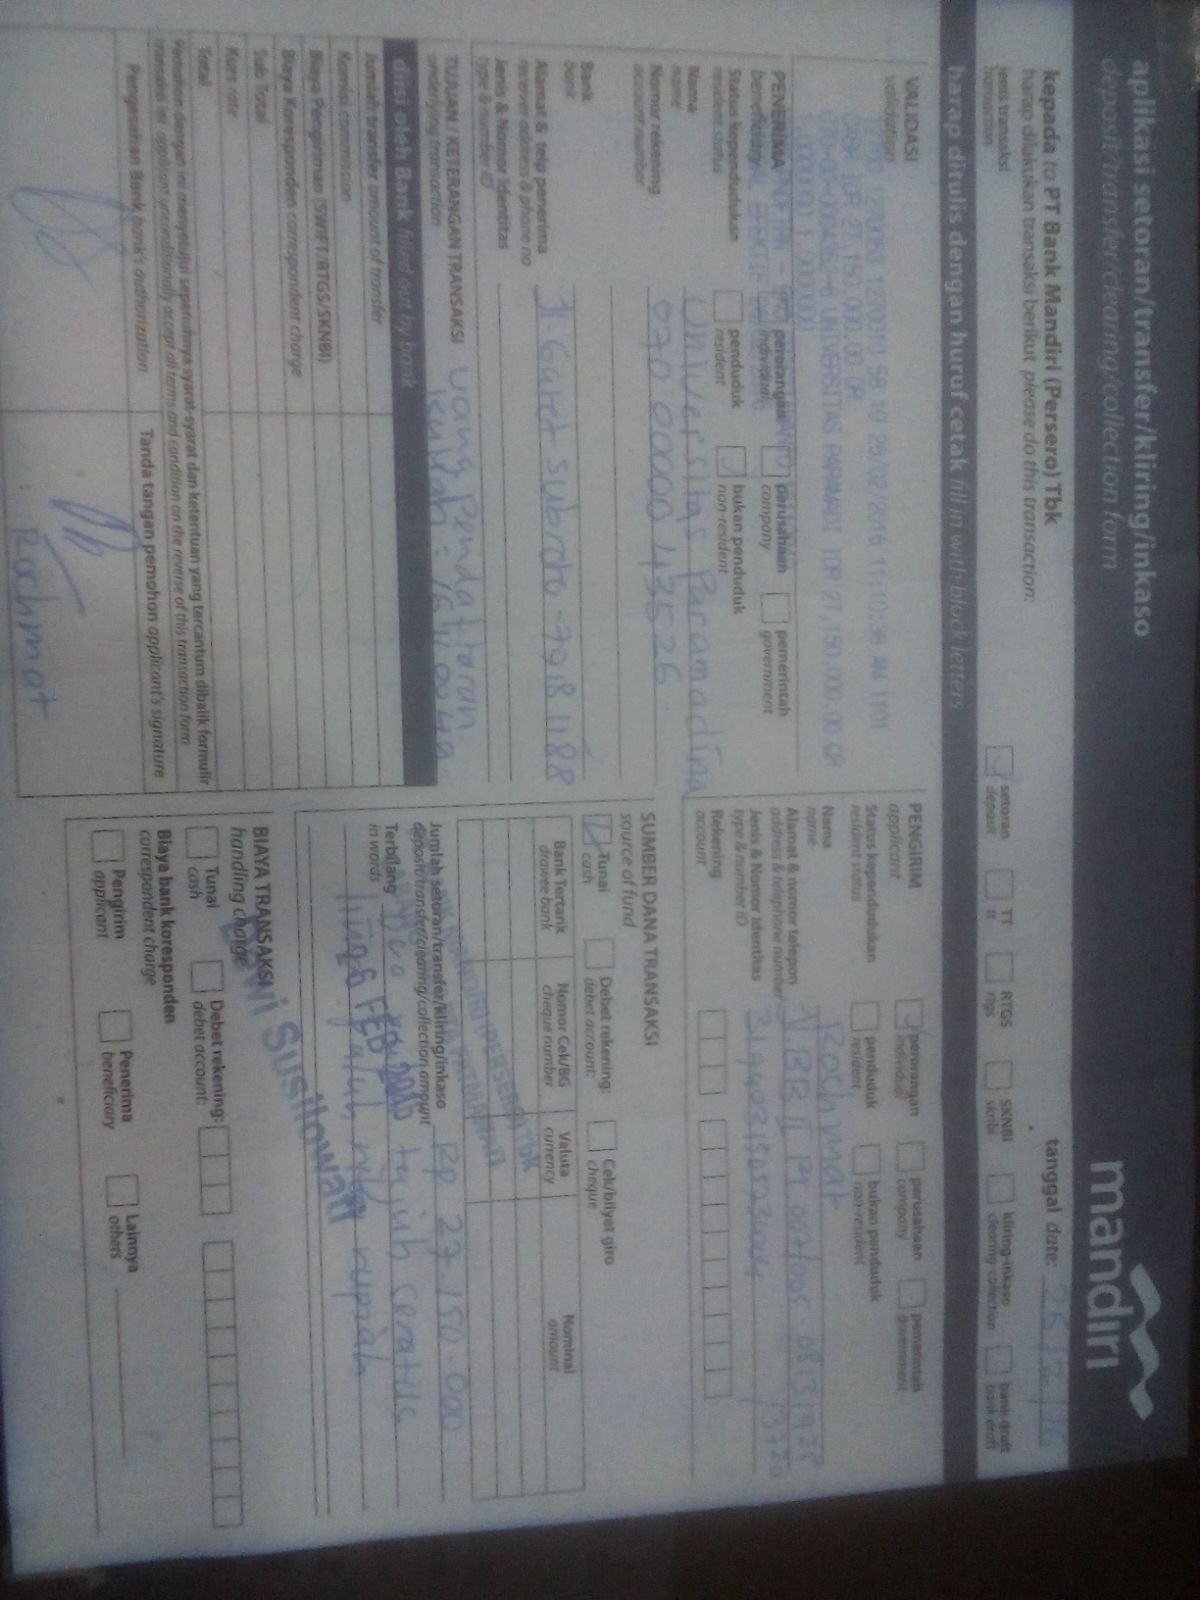 aplikasi setoran/transfer/kliring/inkaso
deposit/transfer/clearing/collection form
mandiri
kepada to PT Bank Mandiri (Persero) Tbk
harap dilakukan transaksi berikut please do this transaction:
tanggal date: 26/2/16
jenis transaksi
transaction
setoran
deposit
TT
tt
RTGS
rtgs
SKNBI
sknbi
kliring-inkaso
clearing-collection
bank draft
bank draft
harap ditulis dengan huruf cetak fill in with block letters
VALIDASI
validation
26/02/2016 11:10:36 AM 1101
IDR 27,150,000.00 CR
UNIVERSITAS PARAMADI IDR 27,150,000.00 CR
PENERIMA
beneficiary
perorangan
individual
perusahaan
company
pemerintah
government
Status kependudukan
resident status
penduduk
resident
bukan penduduk
non-resident
Nama
name
Universitas Paramadina
Nomor rekening
account number
070 00000 43526
Bank
bank
Alamat & telp penerima
receiver address & phone no
Jl. Gatot Subroto - 7918 1188
Jenis & Nomor Identitas
type & number ID
TUJUAN / KETERANGAN TRANSAKSI
underlying transaction
uang Pendaftaran
kuliah :
diisi oleh Bank filled out by bank
Jumlah transfer amount of transfer
Komisi commission
Biaya Pengiriman (SWIFT/RTGS/SKNBI)
Biaya Koresponden correspondent charge
Sub Total
Kurs rate
Total
Pemohon dengan ini menyetujui sepenuhnya syarat-syarat dan ketentuan yang tercantum dibalik formulir
transaksi ini applicant unconditionally accept all terms and condition on the reverse of this transaction form
Pengesahan Bank bank's authorization
Tanda tangan pemohon applicant's signature
Rochmat
PENGIRIM
applicant
perorangan
individual
perusahaan
company
pemerintah
government
Status kependudukan
resident status
penduduk
resident
bukan penduduk
non-resident
Nama
name
Rochmat
Alamat & nomor telepon
address & telephone number
Jenis & Nomor Identitas
type & number ID
Rekening
account
SUMBER DANA TRANSAKSI
source of fund
Tunai
cash
Debet rekening:
debet account:
Cek/bilyet giro
cheque
Bank Tertarik
drawee bank
Nomor Cek/BG
cheque number
Valuta
currency
Nominal
amount
Jumlah setoran/transfer/kliring/inkaso
deposit/transfer/clearing/collection amount
Rp 27.150.000
Terbilang
in words
tujuh seratus
rupiah
26 FEB
Susilowati
BIAYA TRANSAKSI
handling charge
Tunai
cash
Debet rekening:
debet account:
Biaya bank koresponden
correspondent charge
Pengirim
applicant
Penerima
beneficiary
Lainnya
others